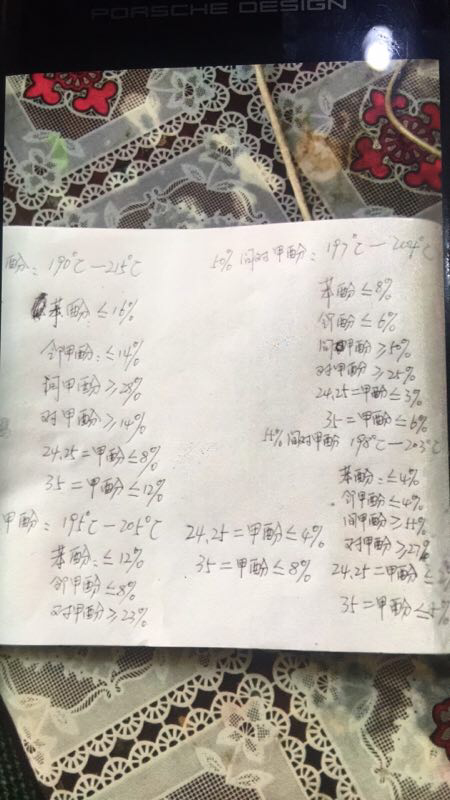 PORSCHE DESIGN
酚：190℃—215℃
苯酚：≤16%
邻甲酚：≤14%
间甲酚≥28%
对甲酚≥14%
24.25=甲酚≤8%
35=甲酚≤12%
甲酚：195℃—205℃
苯酚：≤12%
邻甲酚≤8%
对甲酚≥23%
24.25=甲酚≤4%
35=甲酚≤8%
50%间对甲酚：197℃—204℃
苯酚≤8%
邻酚≤6%
间甲酚≥50%
对甲酚≥25%
24.25=甲酚≤3%
35=甲酚≤6%
55%间对甲酚 198℃—203℃
苯酚≤4%
邻甲酚≤4%
间甲酚≥55%
对甲酚≥27%
24.25=甲酚≤
35=甲酚≤